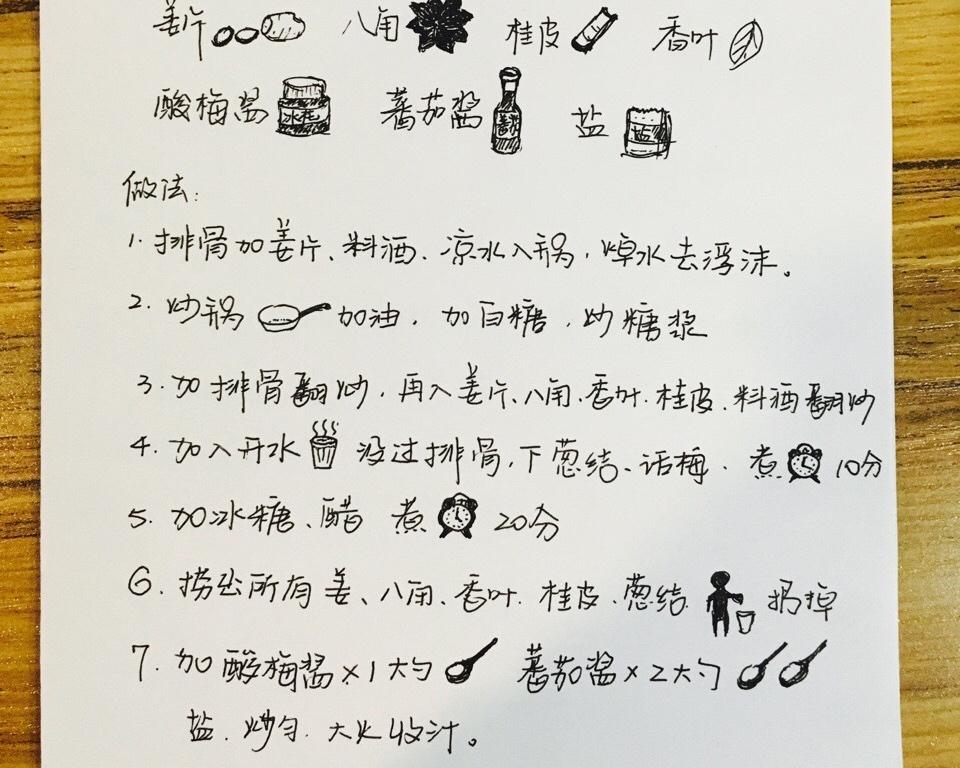 姜片 八角 桂皮 香叶
酸梅酱 蕃茄酱 盐 盐
做法:
1. 排骨加姜片、料酒、凉水入锅,焯水去浮沫。
2. 炒锅 加油,加白糖,炒糖浆
3. 加排骨翻炒,再入姜片、八角、香叶、桂皮、料酒翻炒
4. 加入开水 没过排骨,下葱结、话梅、煮 10分
5. 加冰糖、醋 煮 20分
6. 捞出所有姜、八角、香叶、桂皮、葱结 扔掉
7. 加酸梅酱×1大勺 蕃茄酱×2大勺
盐、炒匀、大火收汁。